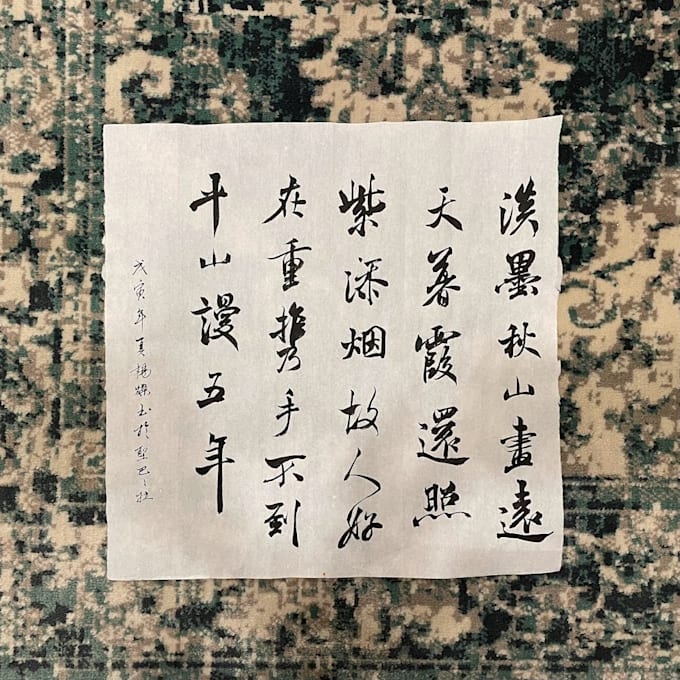 淡墨秋山畫遠
天暮霞還照
紫添烟故人好
在重携手不到
平山謾五年
戊寅年夏楊書於